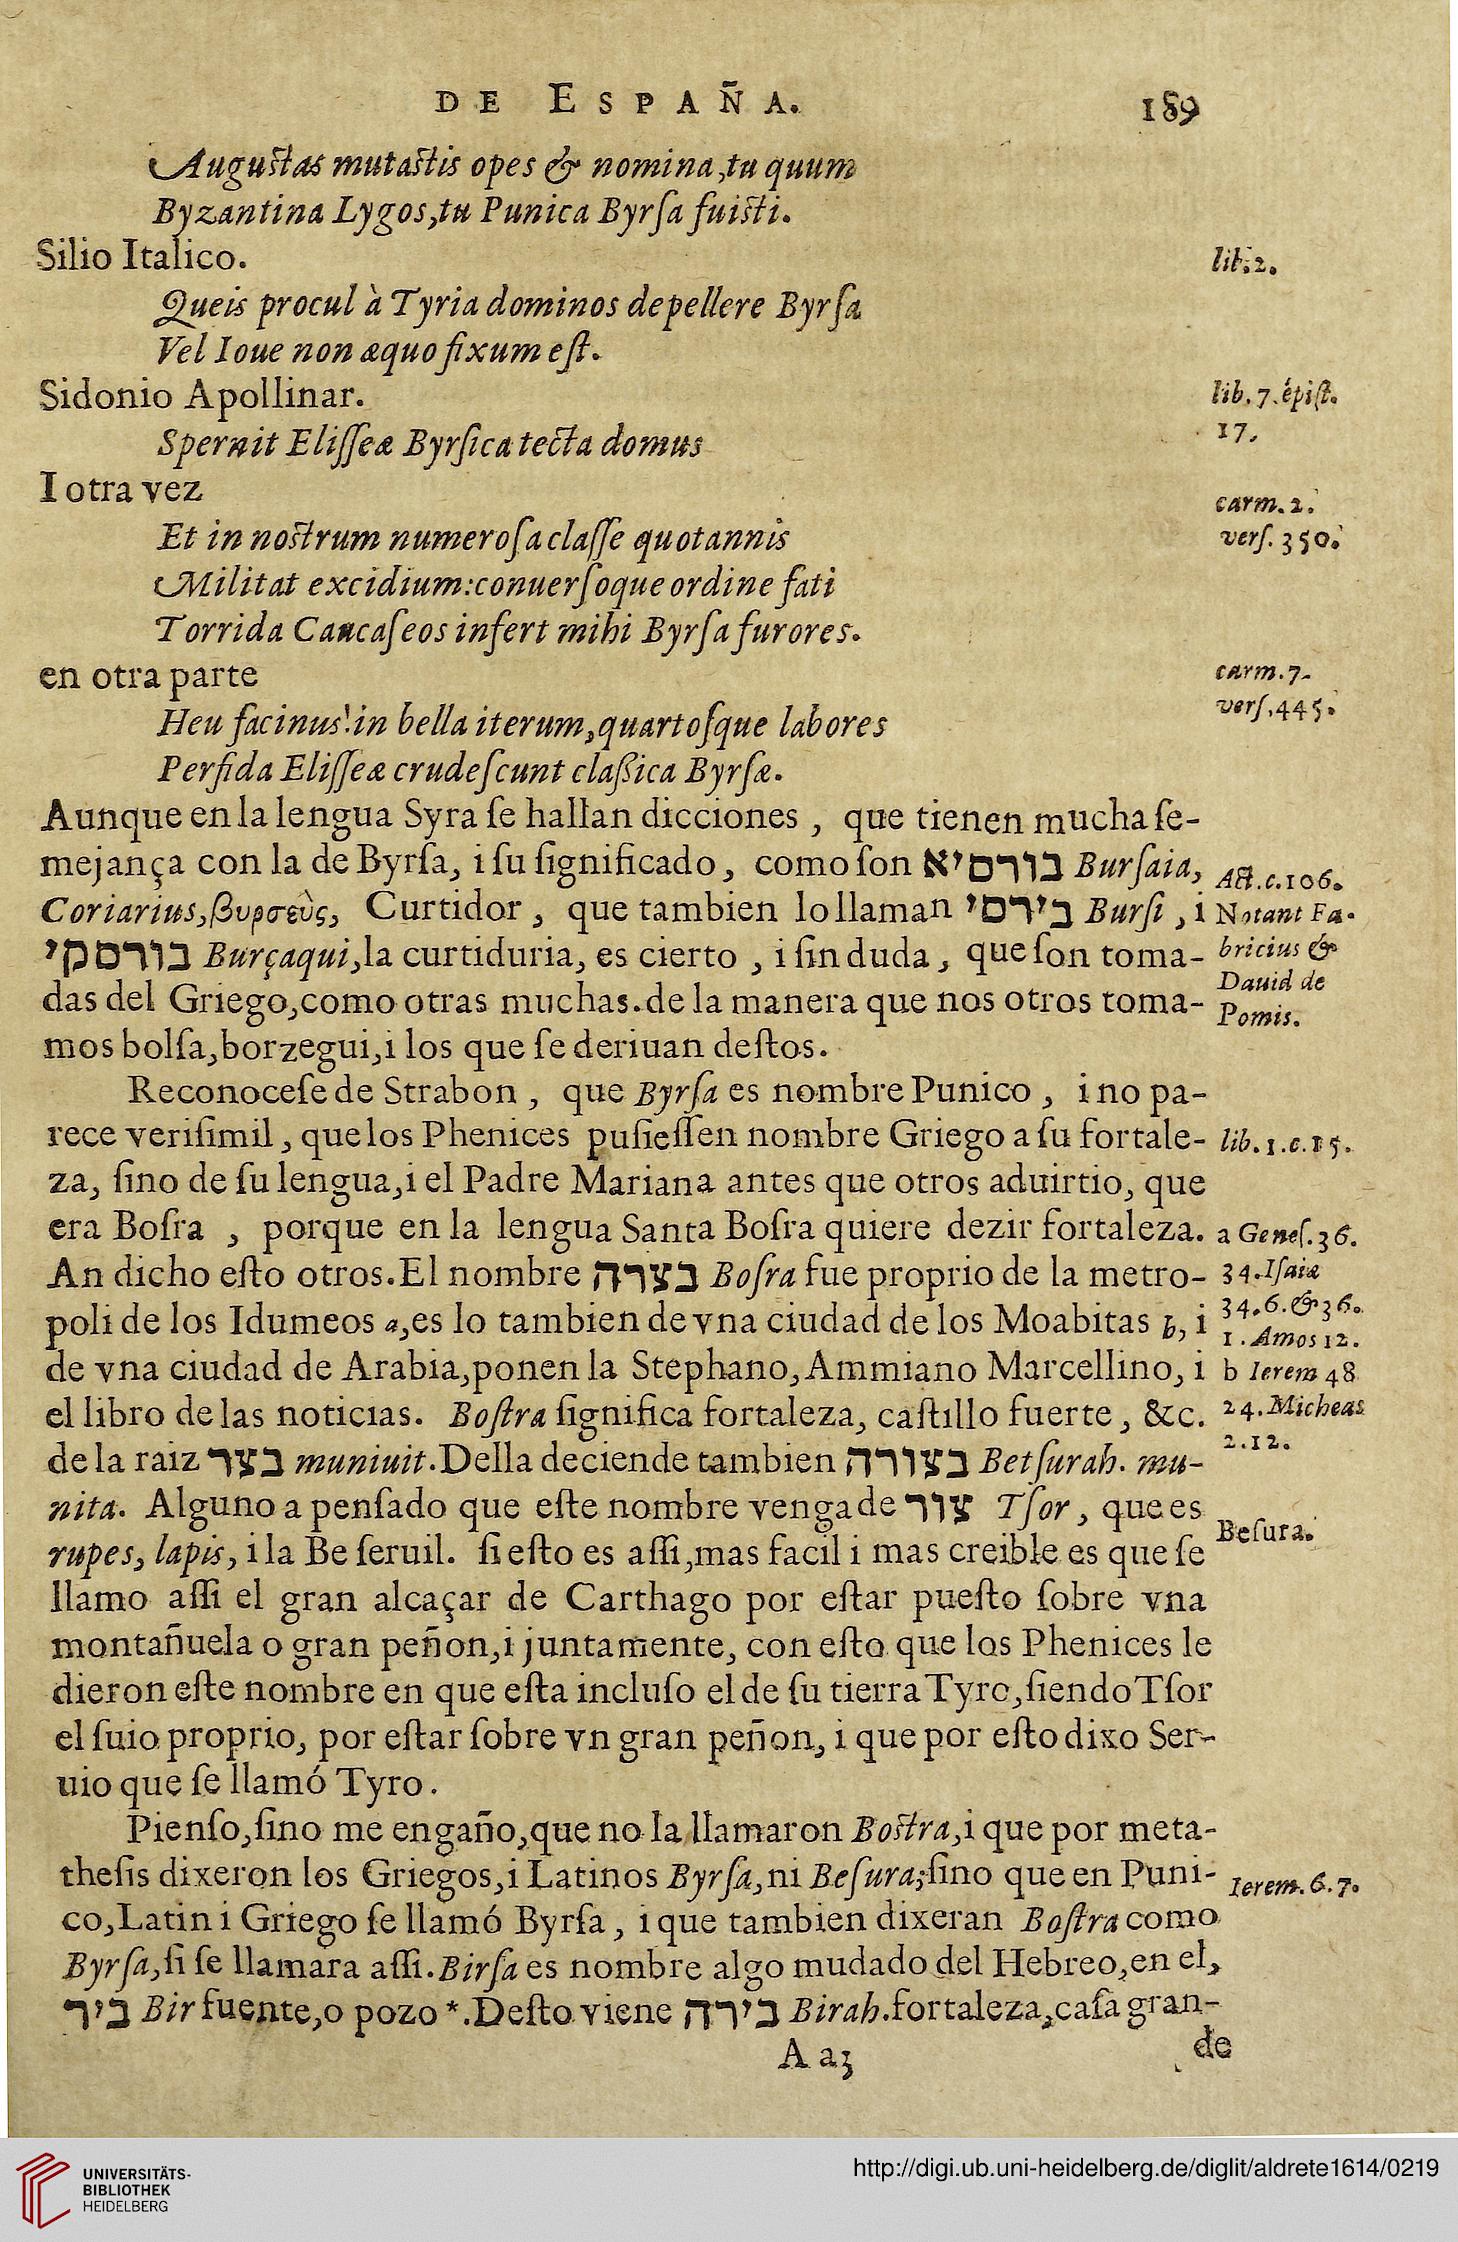 DE ESPAÑA. 189
Augustas mutastis opes & nomina,tu quum
Byzantina Lygos,tu Punica Byrſa fuisti.
Silio Italico. lib.2.
Queis procul à Tyria dominos depellere Byrſa
Vel Ioue non æquo fixum eſt.
Sidonio Apollinar. lib. 7. épiſt.
17.
Spernit Eliſſeæ Byrſica tecta domus
I otra vez
carm. 2.
verſ. 350.
Et in nostrum numeroſa claſſe quotannis
Militat excidium:conuerſoque ordine fati
Torrida Caucaſeos infert mihi Byrſa furores.
en otra parte carm.7.
verſ.445.
Heu facinus!in bella iterum,quartoſque labores
Perfida Eliſſeæ crudeſcunt claßica Byrſæ.
Aunque en la lengua Syra ſe hallan dicciones , que tienen mucha ſe-
mejança con la de Byrſa, i ſu ſignificado, como ſon בורסיא Burſaia, Act.c.106.
Coriarius,βυρσεὺς, Curtidor , que tambien lo llaman בירסי Burſi , i Notant Fa-
בורסקי Burçaqui,la curtiduria, es cierto , i ſin duda, que ſon toma- bricius &
das del Griego,como otras muchas.de la manera que nos otros toma- Dauid de
Pomis.
mos bolſa,borzegui,i los que ſe deriuan deſtos.
Reconoceſe de Strabon , que Byrſa es nombre Punico , i no pa-
rece veriſimil, que los Phenices puſieſſen nombre Griego a ſu fortale- lib.1.c.15.
za, ſino de ſu lengua,i el Padre Mariana antes que otros aduirtio, que
era Boſra , porque en la lengua Santa Boſra quiere dezir fortaleza. a Geneſ.36.
An dicho eſto otros.El nombre בצרה Boſra fue proprio de la metro- 34.Iſaiæ
poli de los Idumeos a,es lo tambien de vna ciudad de los Moabitas b, i 34.6.&36.
1.Amos 12.
de vna ciudad de Arabia,ponen la Stephano,Ammiano Marcellino, i b Ierem 48
el libro de las noticias. Boſtra ſignifica fortaleza, caſtillo fuerte, &c. 24.Micheas
2.12.
de la raiz בצר muniuit.Della deciende tambien בצורה Betſurah. mu-
nita. Alguno a penſado que eſte nombre venga de צור Tſor, que es
rupes, lapis, i la Be ſeruil. ſi eſto es aſſi,mas facil i mas creible es que ſe Beſura.
llamo aſſi el gran alcaçar de Carthago por eſtar pueſto ſobre vna
montañuela o gran peñon,i juntamente, con eſto que los Phenices le
dieron eſte nombre en que eſta incluſo el de ſu tierra Tyro,ſiendo Tſor
el ſuio proprio, por eſtar ſobre vn gran peñon, i que por eſto dixo Ser-
uio que ſe llamó Tyro.
Pienſo,ſino me engaño,que no la llamaron Bostra,i que por meta-
theſis dixeron los Griegos,i Latinos Byrſa,ni Beſura;ſino que en Puni- Ierem.6.7.
co,Latin i Griego ſe llamó Byrſa, i que tambien dixeran Boſtra como
Byrſa,ſi ſe llamara aſſi.Birſa es nombre algo mudado del Hebreo,en el,
ביר Bir fuente,o pozo *.Deſto viene בירה Birah.fortaleza,caſa gran-
A a3 de
UNIVERSITÄTS-
BIBLIOTHEK
HEIDELBERG
http://digi.ub.uni-heidelberg.de/diglit/aldrete1614/0219